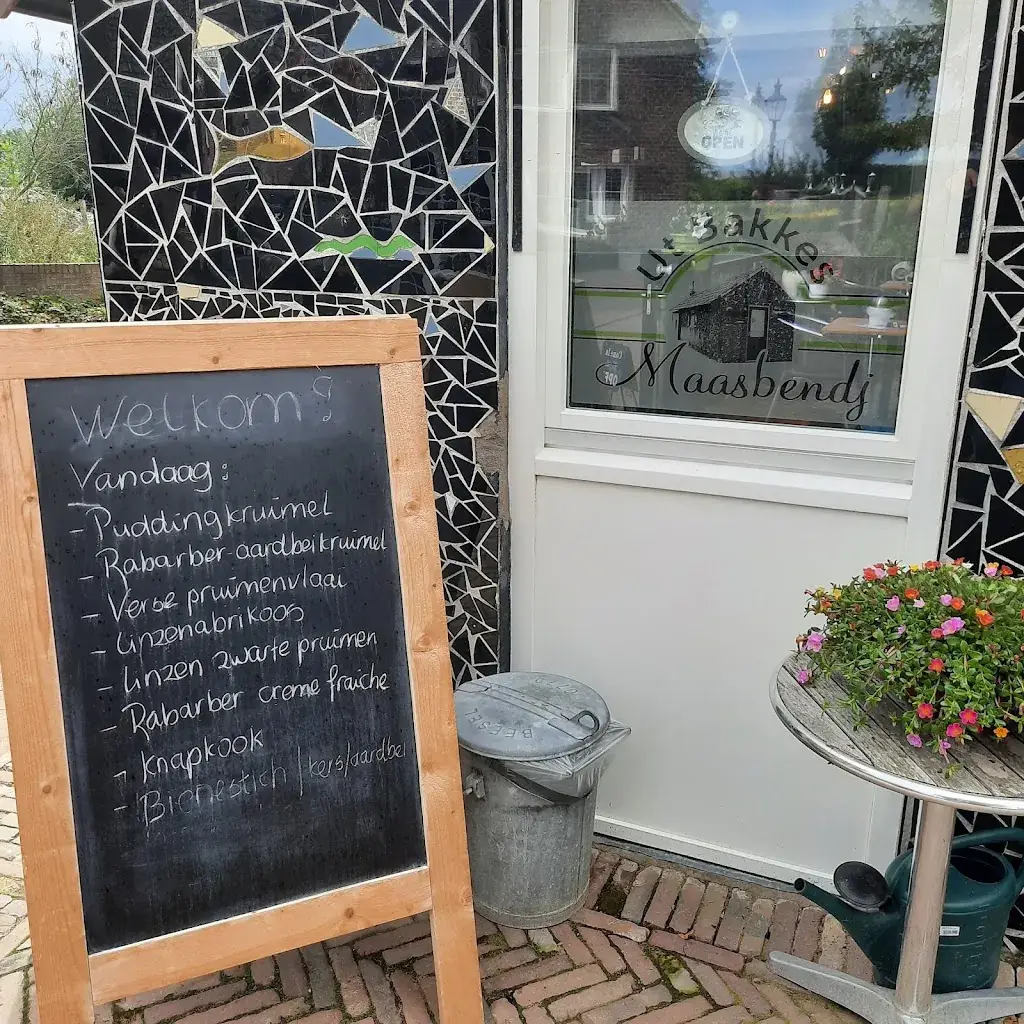 Welkom!
Vandaag:
- Puddingkruimel
- Rabarber-aardbeikruimel
- Verse pruimenvlaai
- Linzenabrikoos
- Linzen zwarte pruimen
- Rabarber creme fraiche
- Knapkook
- Bienestich / kers/aardbei
OPEN
Ut Bakkes
Maasbendj